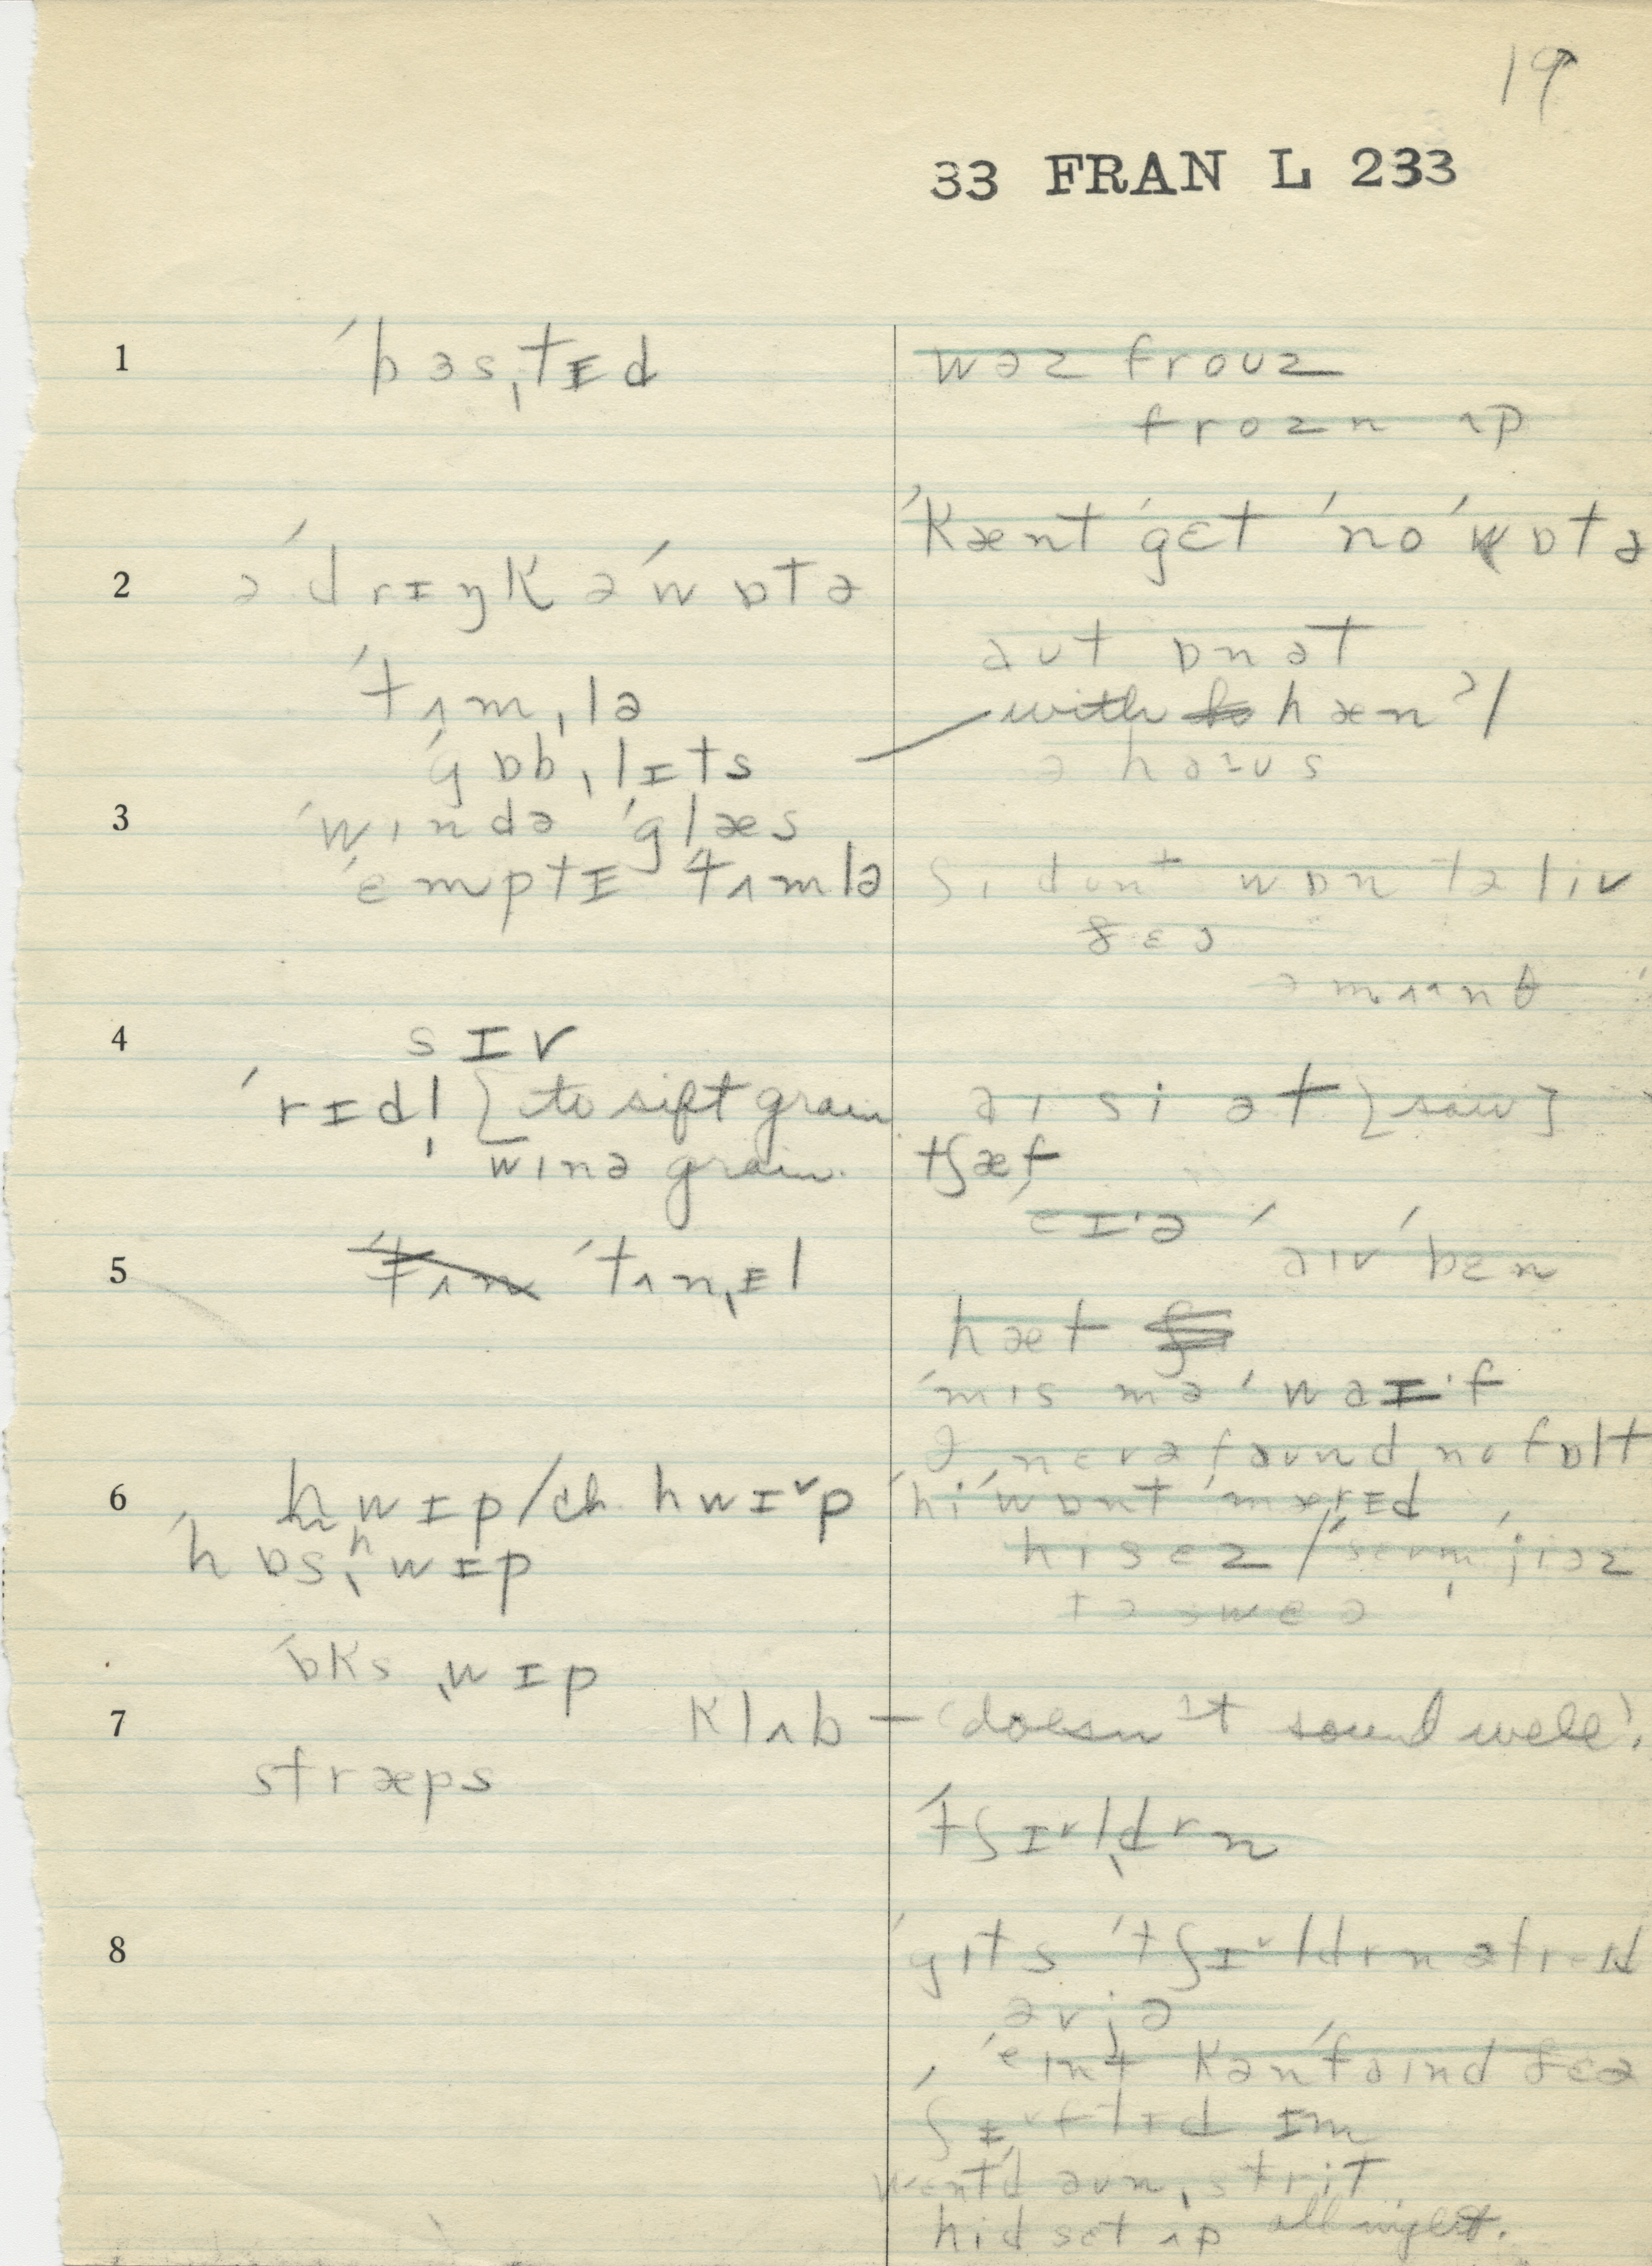 19
33 FRAN L 233
1
ˈbɜsˌtɪd
wəz frouz
frozn ʌp
ˈkænt ˈgɛt ˈno ˈwɒtə
2
ə ˈdrɪŋk ə ˈwɒtə
aut ɒn ət
ˈtʌmˌlə
with hæn'l
ˈgɒbˌlɪts
ə haus
3
ˈwɪndə ˈglæs
ˈɛmptɪ ˈtʌmlə
ʃi dont wɒn tə liv
ðɛə
ə mʌnθ
4
sɪv
ˈrɪdl̩ [to sift grain
aɪ si ət [saw]
wɪnə grain.
tʃæf
ˈɛɪə
aɪv ˈbɛn
5
ˈtʌn ˈtʌnˌɪl
hæt
ˈmɪs mə ˈwaɪf
nɛvə faund no fɒlt
6
hwɪp/ch. hwɪˇp
ˈhi ˈwɒnt ˈmærɪd
ˈhɒsˌʰwɪp
hɪ sez / ˈsɛvm̩ ˈjiəz
tə swɛə
ˈɒksˌwɪp
7
klʌb – 'doesn't sound well'.
stræps
ˈtʃɪˇldrn
8
ˈgɪts ˈtʃɪˇldrn
əv jə
ˈeɪnt kən ˈfaɪnd ðɛə
ʃɪˇftɪd ɪm
went daun ˌstrit
hid set ʌp all night.